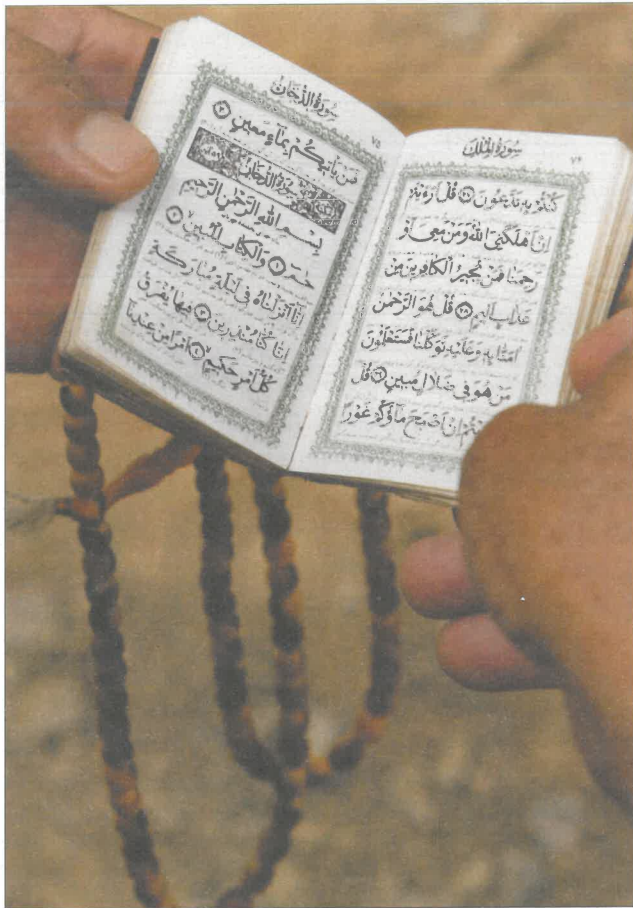 سُورَةُ المُلْكِ ٧٤
كُنْتُمْ بِهِ تَدَّعُونَ ۝ قُلْ اَرَءَيْتُمْ
اِنْ اَهْلَكَنِىَ اللّٰهُ وَمَنْ مَعِىَ اَوْ
رَحِمَنَا فَمَنْ يُجِيرُ الْكَافِرِينَ مِنْ
عَذَابٍ اَلِيمٍ ۝ قُلْ هُوَ الرَّحْمٰنُ
اٰمَنَّا بِهِ وَعَلَيْهِ تَوَكَّلْنَا فَسَتَعْلَمُونَ
مَنْ هُوَ فِى ضَلَالٍ مُبِينٍ ۝ قُلْ
اِنْ اَصْبَحَ مَآؤُكُمْ غَوْرًا
٧٥ سُورَةُ الدُّخَانِ
فَمَنْ يَاْتِيكُمْ بِمَآءٍ مَعِينٍ ۝
سُورَةُ الدُّخَانِ
بِسْمِ اللّٰهِ الرَّحْمٰنِ الرَّحِيمِ
حٰمٓ ۝ وَالْكِتَابِ الْمُبِينِ ۝
اِنَّآ اَنْزَلْنَاهُ فِى لَيْلَةٍ مُبَارَكَةٍ
اِنَّا كُنَّا مُنْذِرِينَ ۝ فِيهَا يُفْرَقُ
كُلُّ اَمْرٍ حَكِيمٍ ۝ اَمْرًا مِنْ عِنْدِنَا